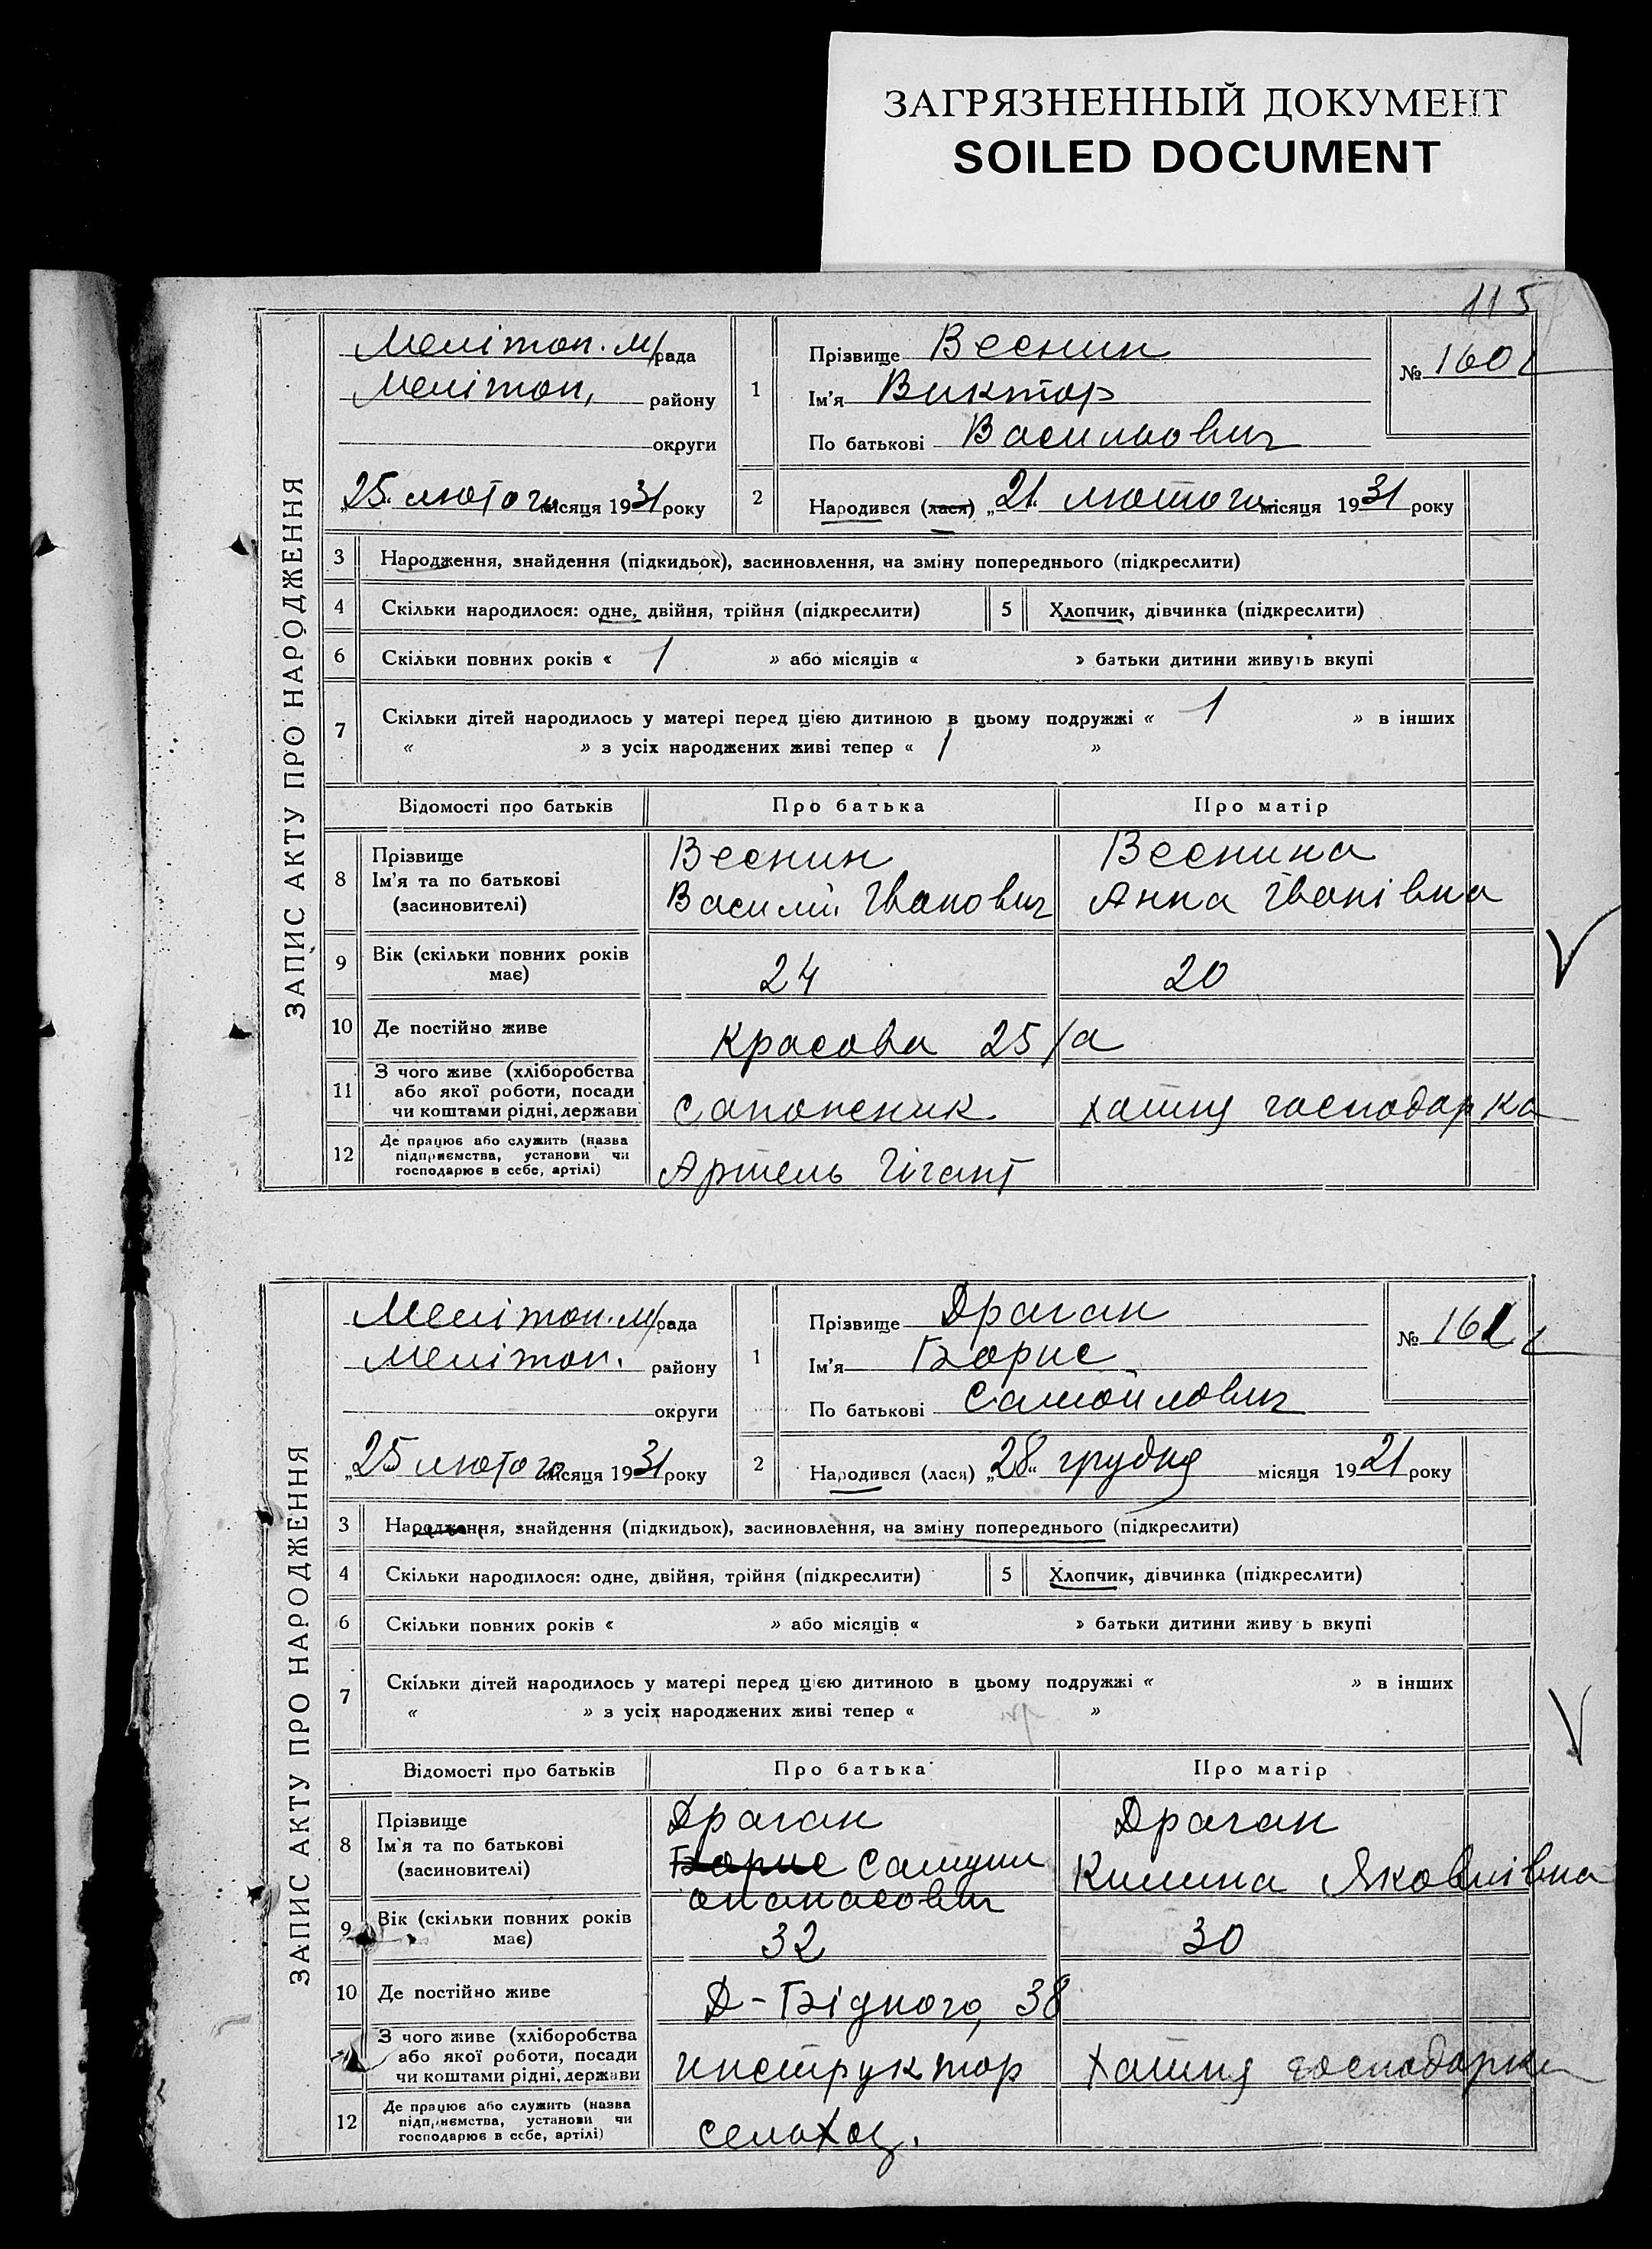 ЗАГРЯЗНЕННЫЙ ДОКУМЕНТ
SOILED DOCUMENT
115
ЗАПИС АКТУ ПРО НАРОДЖЕННЯ
Мелітоп. м/рада
Мелітоп, району
округи
„25“ лютого місяця 1931 року
1
Прізвище Веснин
Ім'я Виктор
По батькові Васильович
№ 160
2
Народився (лася) „21“ лютого місяця 1931 року
3 Народження, знайдення (підкидьок), засиновлення, на зміну попереднього (підкреслити)
4 Скільки народилося: одне, двійня, трійня (підкреслити) 5 Хлопчик, дівчинка (підкреслити)
6 Скільки повних років « 1 » або місяців « » батьки дитини живуть вкупі
7 Скільки дітей народилось у матері перед цією дитиною в цьому подружжі « 1 » в інших
« » з усіх народжених живі тепер « 1 »
Відомості про батьків Про батька Про матір
8 Прізвище
Ім'я та по батькові
(засиновителі)
Веснин
Василий Іванович
Веснина
Анна Іванівна
9 Вік (скільки повних років
має)
24 20
10 Де постійно живе Красова 25/а
11 З чого живе (хліборобства
або якої роботи, посади
чи коштами рідні, держави
сапожник хатня господарка
12 Де працює або служить (назва
підприємства, установи чи
господарює в себе, артілі)
Артель Гігант
ЗАПИС АКТУ ПРО НАРОДЖЕННЯ
Мелітоп. м/рада
Мелітоп. району
округи
„25 лютого місяця 1931 року
1
Прізвище Драган
Ім'я Борис
По батькові Самойлович
№ 161
2
Народився (лася) „28“ грудня місяця 1921 року
3 Народження, знайдення (підкидьок), засиновлення, на зміну попереднього (підкреслити)
4 Скільки народилося: одне, двійня, трійня (підкреслити) 5 Хлопчик, дівчинка (підкреслити)
6 Скільки повних років « » або місяців « » батьки дитини живу ь вкупі
7 Скільки дітей народилось у матері перед цією дитиною в цьому подружжі « » в інших
« » з усіх народжених живі тепер « »
Відомості про батьків Про батька Про матір
8 Прізвище
Ім'я та по батькові
(засиновителі)
Драган
Борис Самуил
опанасович
Драган
Килина Яковлівна
9 Вік (скільки повних років
має)
32 30
10 Де постійно живе Д-Бідного, 38
З чого живе (хліборобства
або якої роботи, посади
чи коштами рідні, держави
инструктор хатня господарка
12 Де працює або служить (назва
підприємства, установи чи
господарює в себе, артілі)